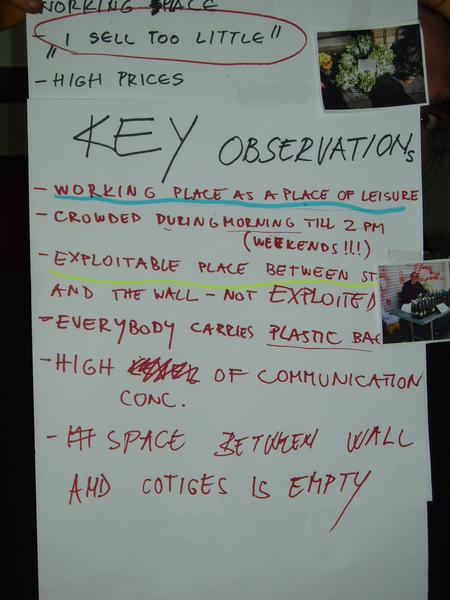 WORKING SPACE
"I SELL TOO LITTLE"
- HIGH PRICES
KEY OBSERVATIONS
- WORKING PLACE AS A PLACE OF LEISURE
- CROWDED DURING MORNING TILL 2 PM
(WEEKENDS!!!)
- EXPLOITABLE PLACE BETWEEN ST
AND THE WALL - NOT EXPLOITED
- EVERYBODY CARRIES PLASTIC BAG
- HIGH OF COMMUNICATION
CONC.
- SPACE BETWEEN WALL
AND COTIGES IS EMPTY